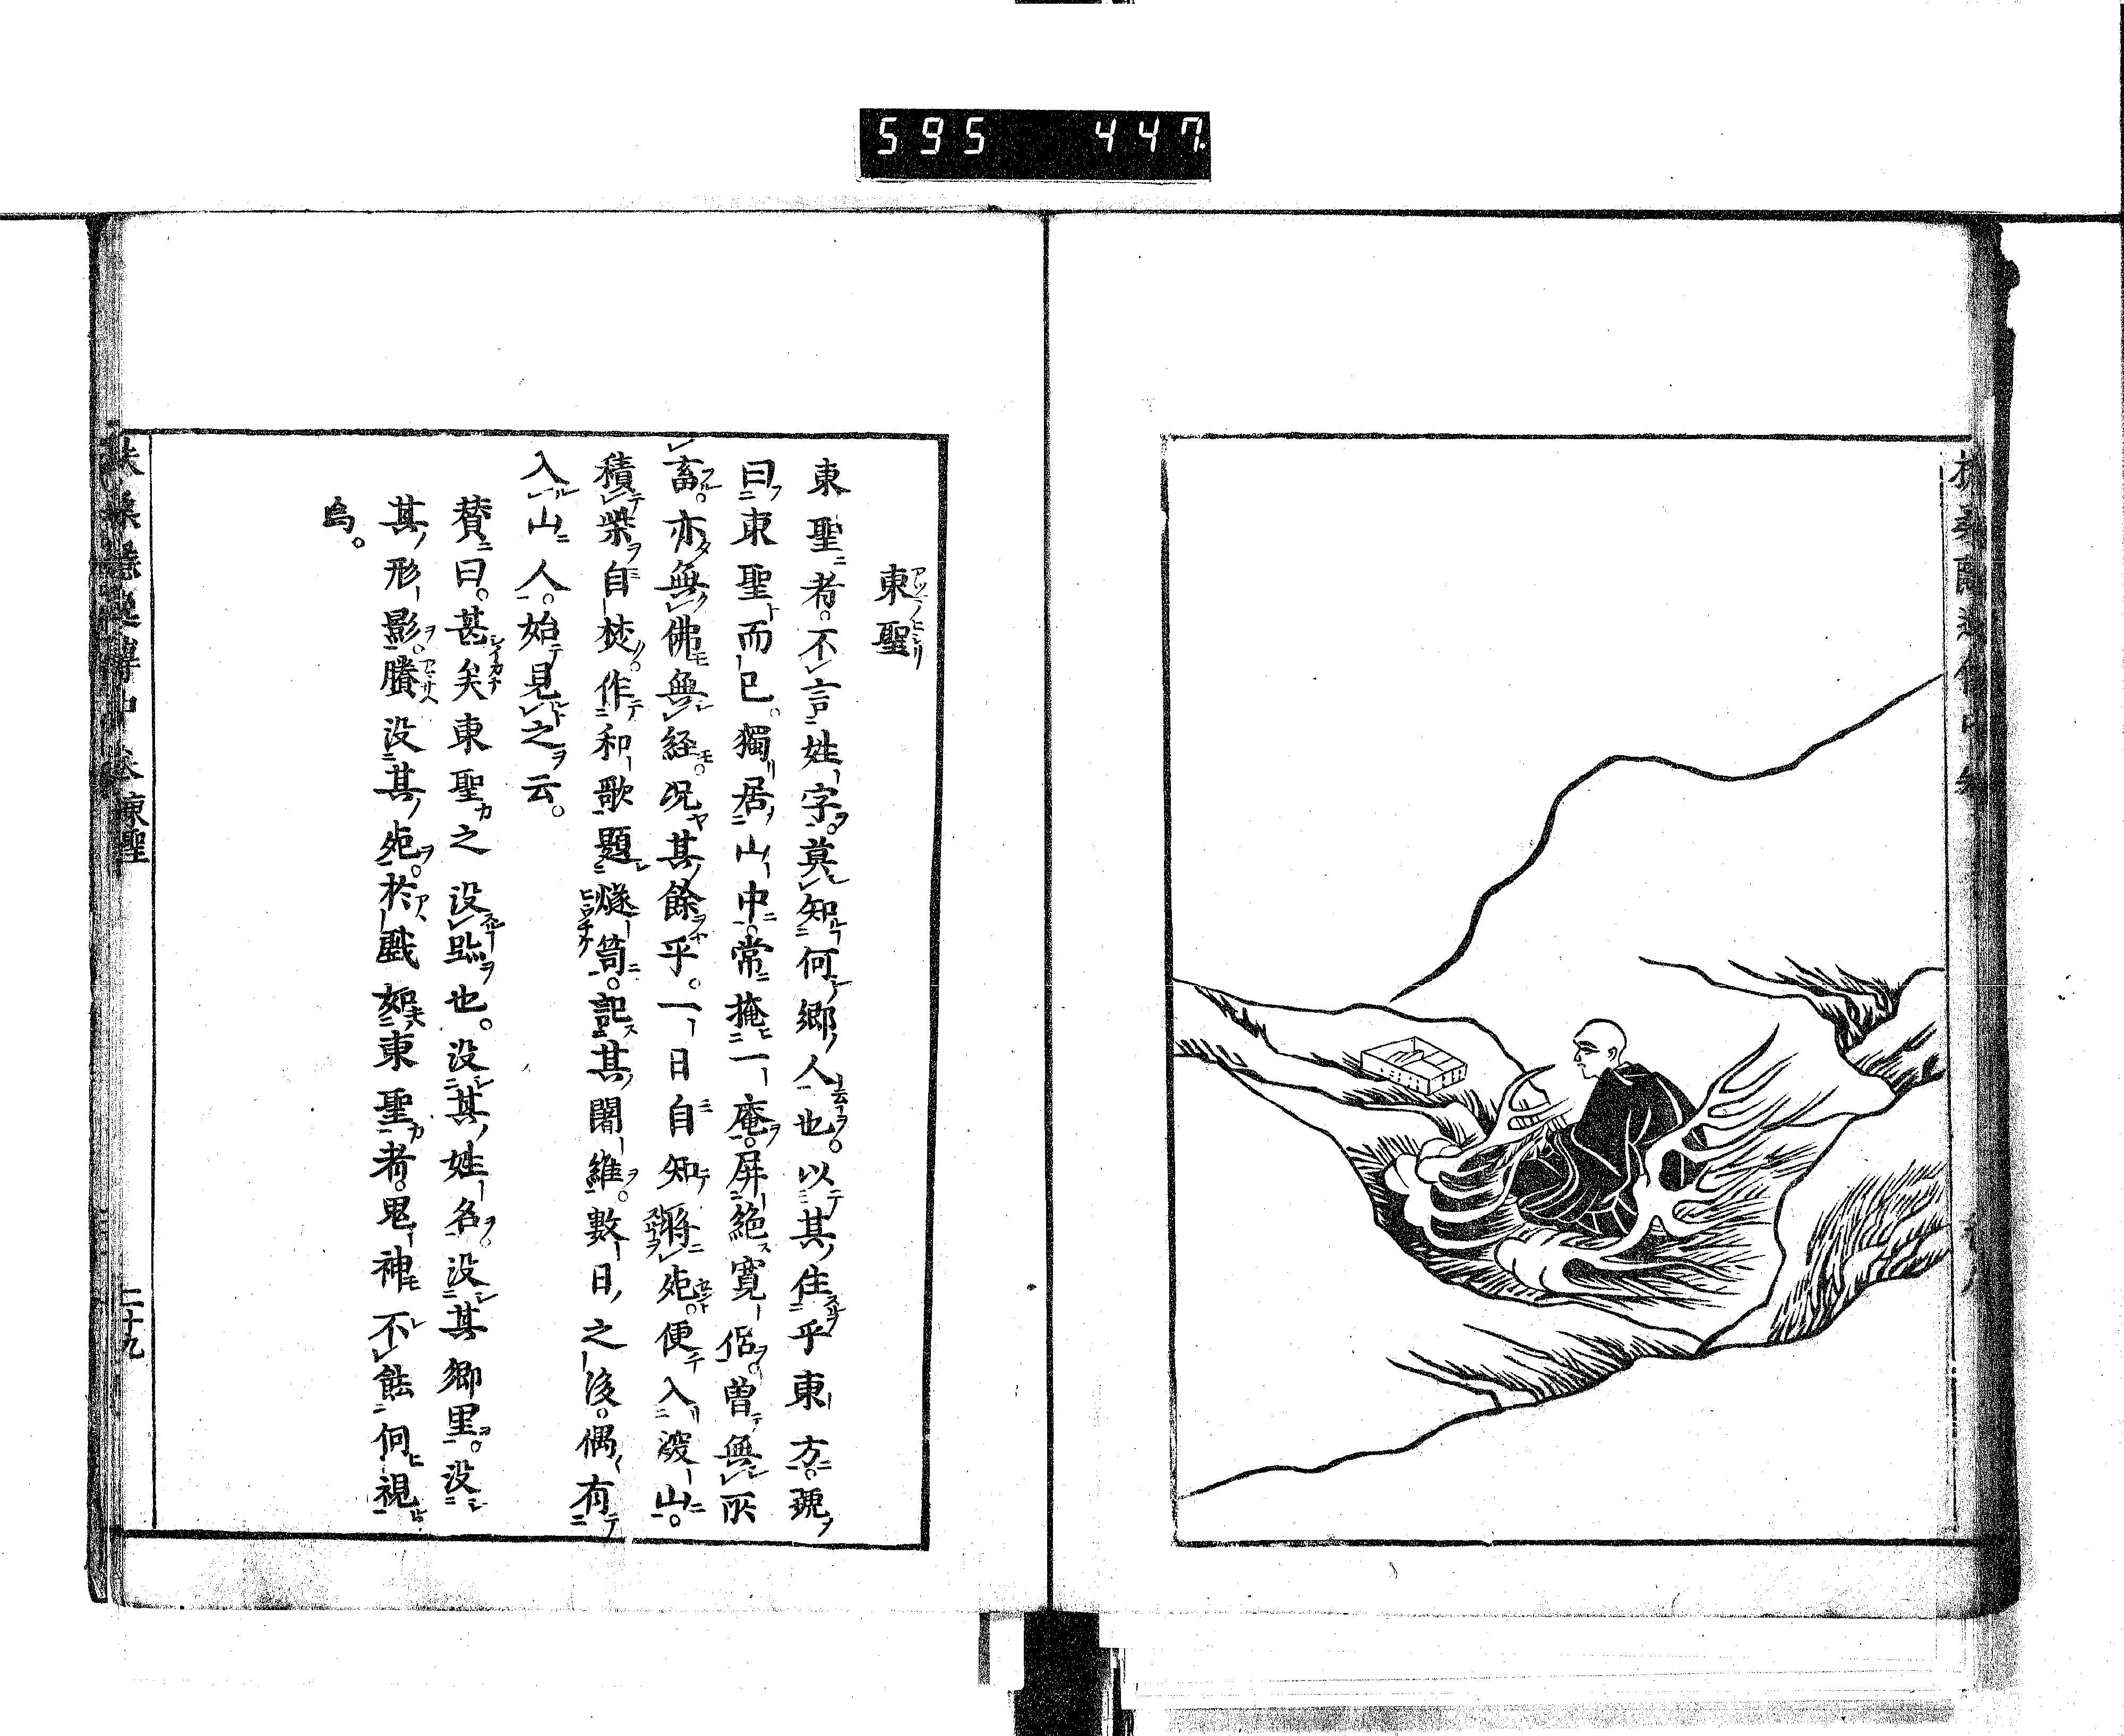 595 447
東聖
東聖者。不言姓字。莫知何郷人也。以其住乎東方。號
曰東聖而已。獨居山中。常掩一庵。屏絶寛侶。曽無所
畜。亦無佛無経。况其餘乎。一日自知将死。便入深山。
積柴自焚。作和歌題燧筒。記其闍維。數日之後。偶有
入山人。始見之云。
賛曰。甚矣東聖之没跡也。没其姓名。没其郷里。没
其形影。賸没其死。於戲如東聖者。鬼神不能伺視
焉。
扶桑隠逸傳中巻 東聖 二十九